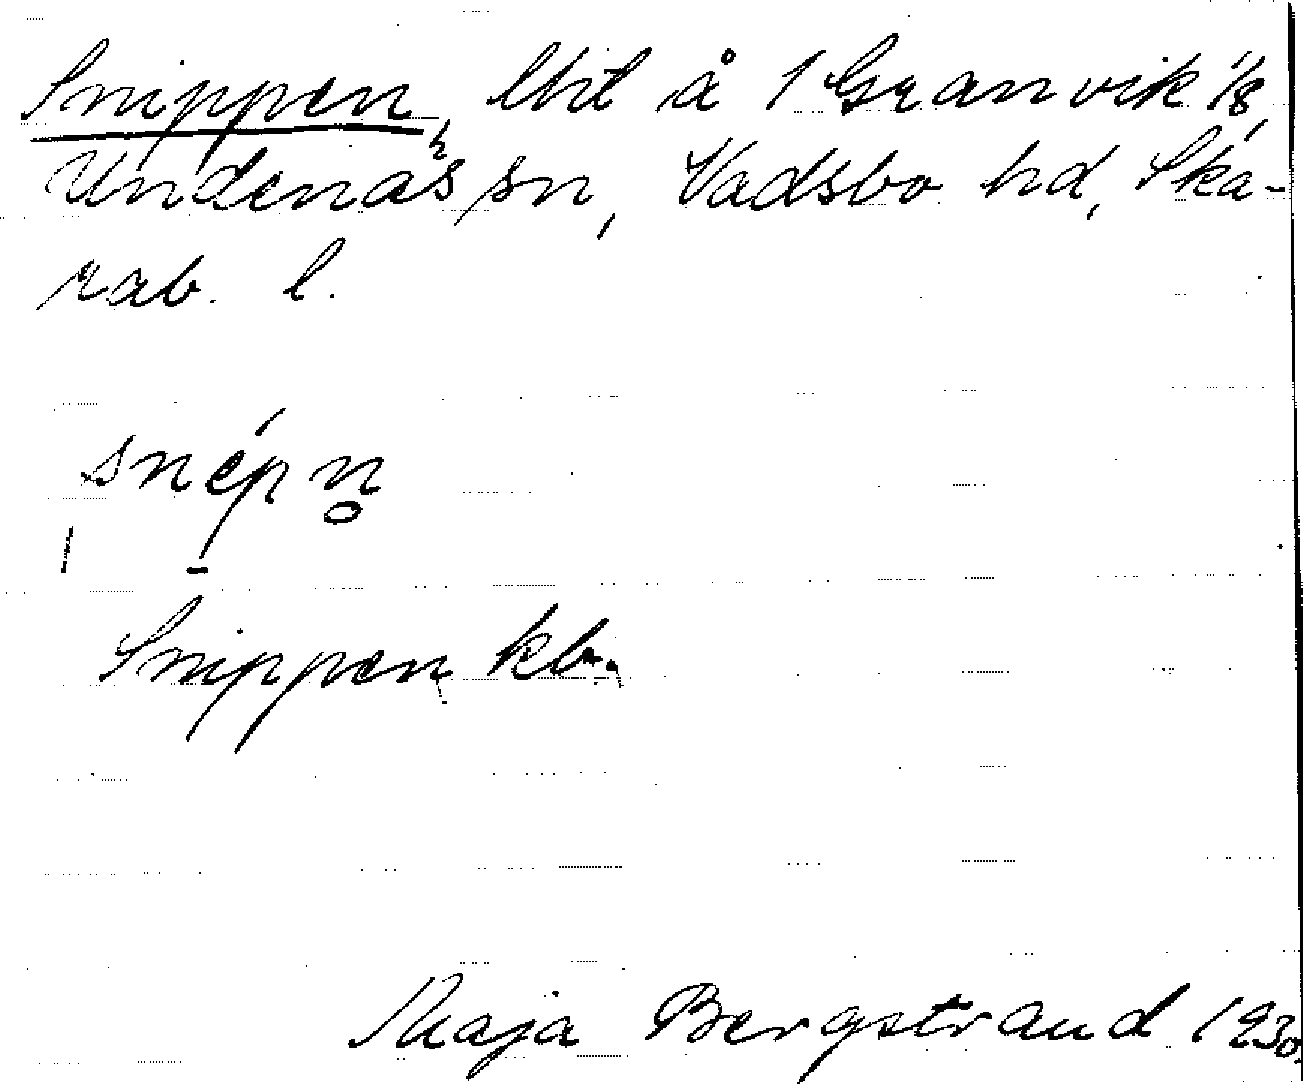 Snippen, lht å 1 Granvik 1/8,
Undenäs sn, Vadsbo hd, Ska-
rab. l.
snépn̥
Snippen kb.
Maja Bergstrand 1930.